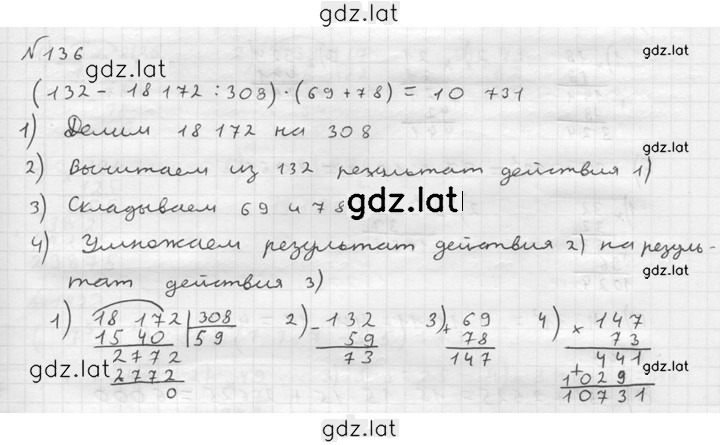 gdz.lat
№136
gdz.lat
gdz.lat
(132 - 18 172 : 308) · (69 + 78) = 10 731
1) Делим 18 172 на 308
gdz.lat
2) Вычитаем из 132 результат действия 1)
3) Складываем 69 и 78
gdz.lat
4) Умножаем результат действия 2) на резуль-
тат действия 3)
1) 18 172 308
15 40 59
2772
2772
0
2) - 132
59
73
3) + 69
78
147
4) × 147
73
441
+
1 029
10731
gdz.lat
gdz.lat
gdz.lat